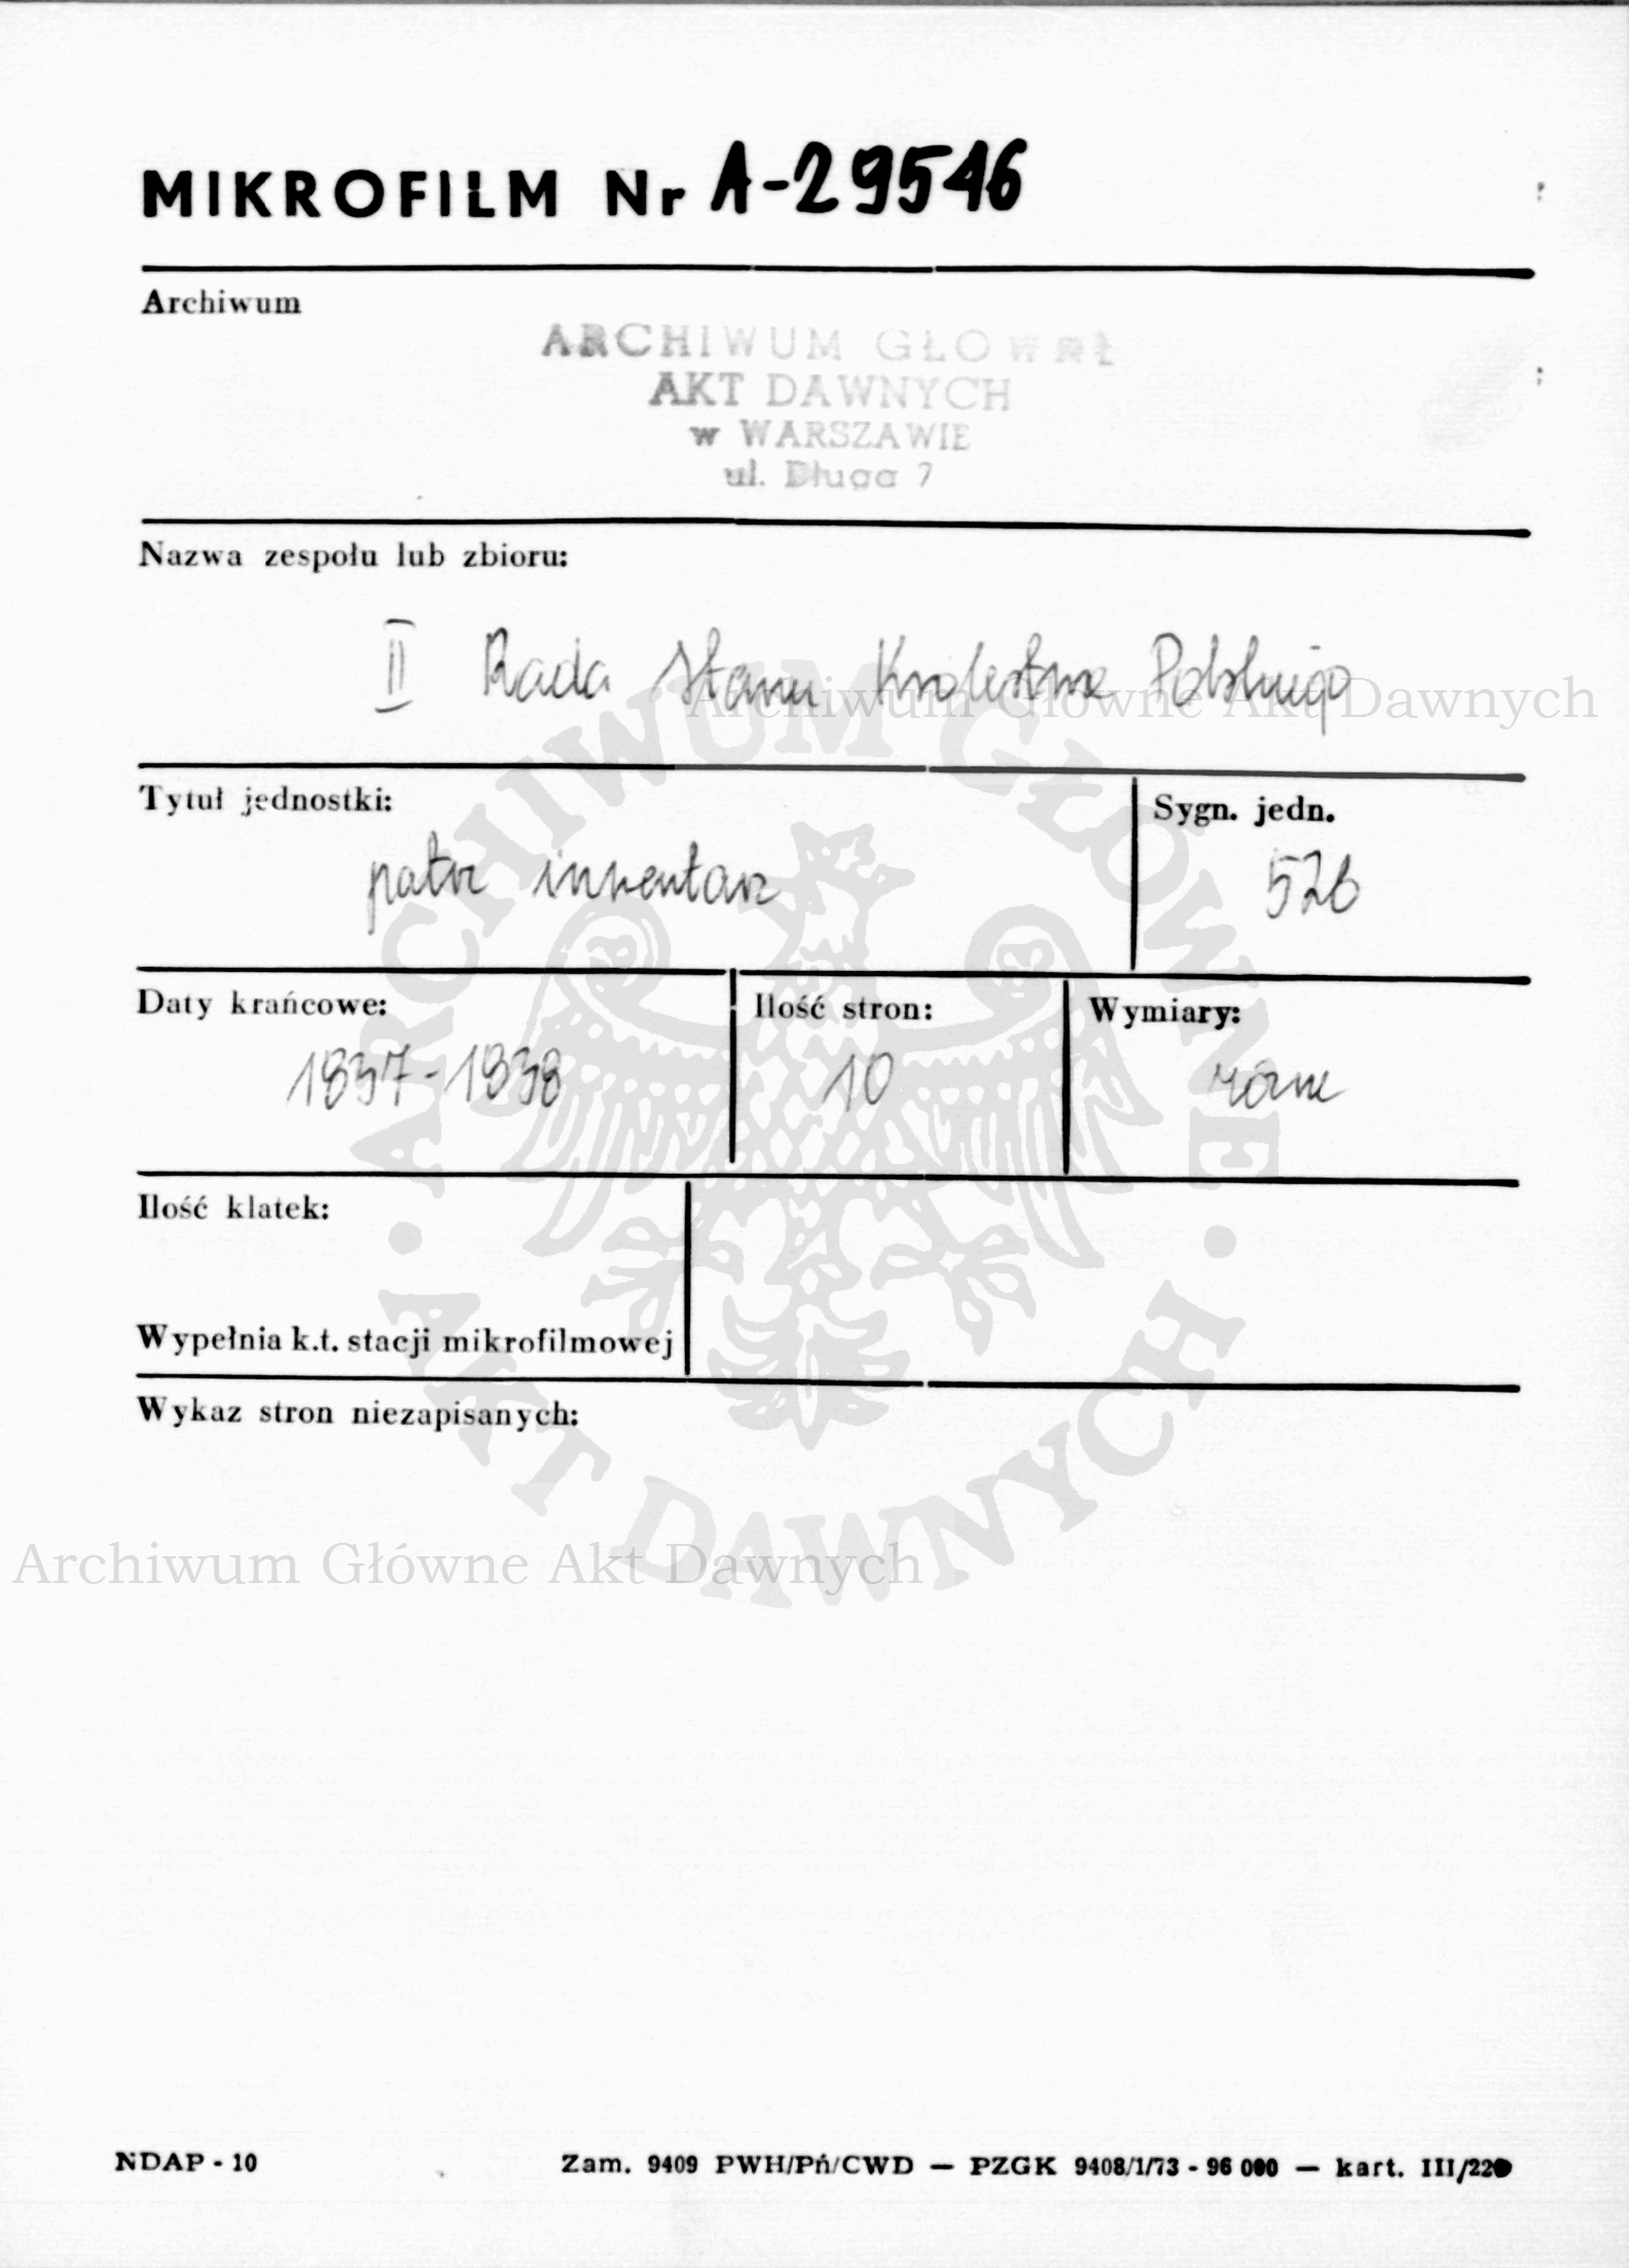 MIKROFILM Nr A-29546
Archiwum
ARCHIWUM GŁOWNE
AKT DAWNYCH
w WARSZAWIE
ul. Długa 7
Nazwa zespołu lub zbioru:
II Rada Stanu Królestwa Polskiego
Archiwum Główne Akt Dawnych
Tytuł jednostki:
patrz inwentarz
Sygn. jedn.
526
Daty krańcowe:
1837-1838
Ilość stron:
10
Wymiary:
różne
Ilość klatek:
Wypełnia k.t. stacji mikrofilmowej
Wykaz stron niezapisanych:
ARCHIWUM GŁÓWNE
AKT DAWNYCH
Archiwum Główne Akt Dawnych
NDAP - 10
Zam. 9409 PWH/Pń/CWD — PZGK 9408/1/73 - 96 000 — kart. III/220